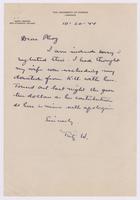 THE UNIVERSITY OF KANSAS
LAWRENCE
10-20-44
Dear Phog
I am indeed sorry I
neglected this. I had thought
my wife was including my
donation from Hill with hers.
Found out last night she gave
ten dollars as her contribution
so here is mine with apologies
Sincerely